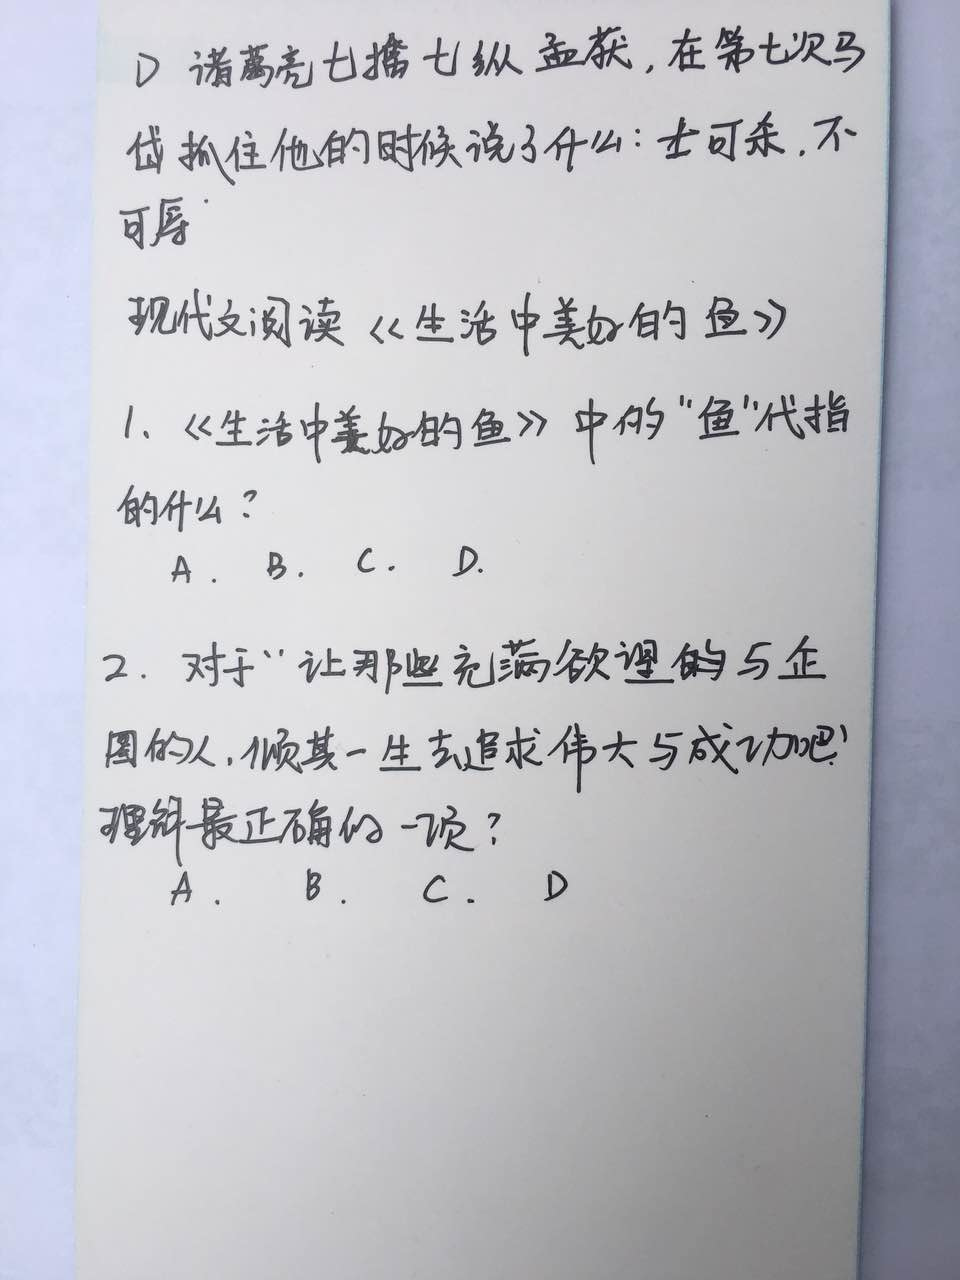 D 诸葛亮七擒七纵孟获,在第七次马
岱抓住他的时候说了什么:士可杀,不
可辱
现代文阅读《生活中美好的鱼》
1、《生活中美好的鱼》中的"鱼"代指
的什么?
A. B. C. D.
2. 对于"让那些充满欲望的与企
图的人,倾其一生去追求伟大与成功吧"
理解最正确的一项?
A. B. C. D